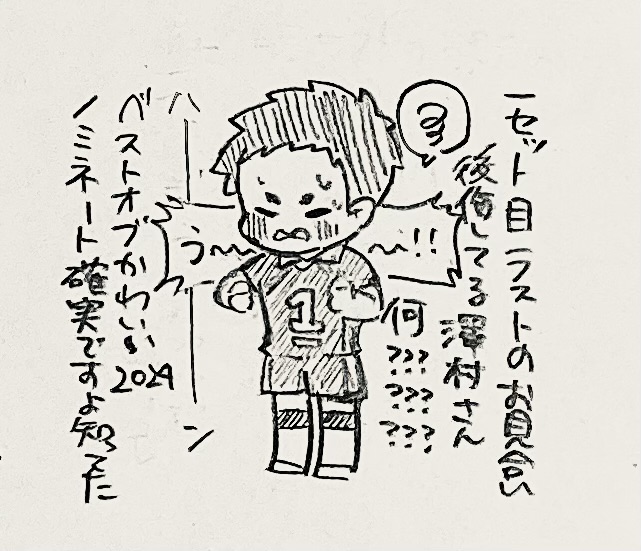 一セット目ラストのお見合い
後悔してる澤村さん
何??????????
う〜〜!!
1
ハーン
ベストオブかわいい2024
ノミネート確実ですよ知ってた